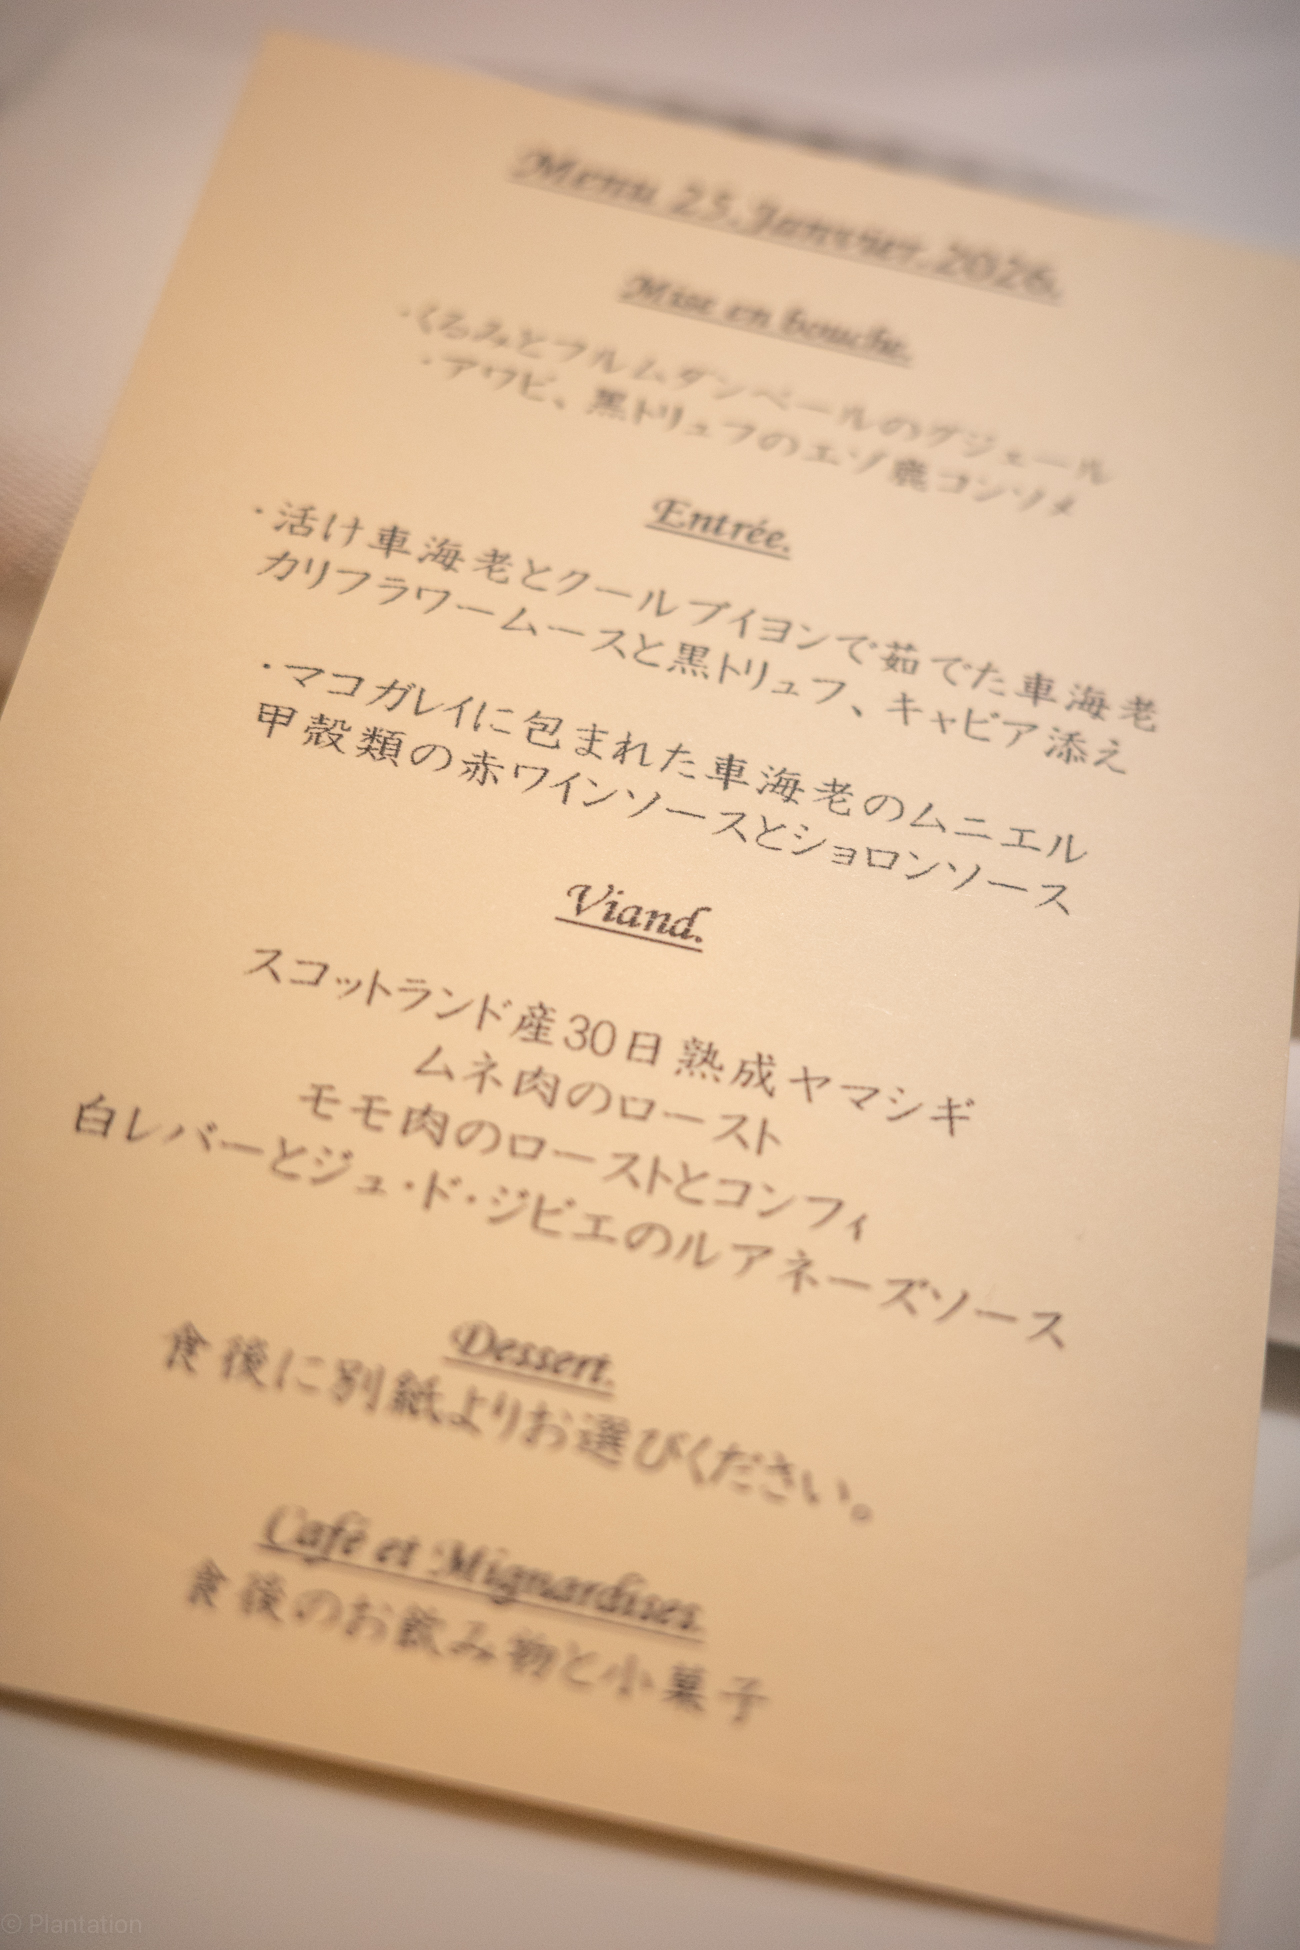 Menu 25.Janvier.2026.
Mise en bouche.
・くるみとフルムダンベールのグジェール
・アワビ、黒トリュフのエゾ鹿コンソメ
Entrée.
・活け車海老とクールブイヨンで茹でた車海老
カリフラワームースと黒トリュフ、キャビア添え
・マコガレイに包まれた車海老のムニエル
甲殻類の赤ワインソースとショロンソース
Viand.
スコットランド産30日熟成ヤマシギ
ムネ肉のロースト
モモ肉のローストとコンフィ
白レバーとジュ・ド・ジビエのルアネーズソース
Dessert.
食後に別紙よりお選びください。
Café et Mignardises.
食後のお飲み物と小菓子
© Plantation